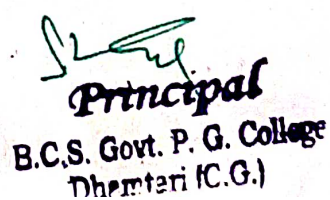 Principal
B.C.S. Govt. P. G. College
Dhamtari (C.G.)